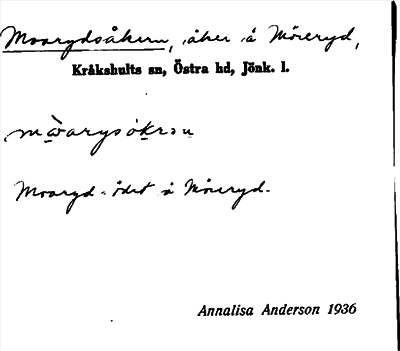 Moarydsåkern, åker å Möreryd,
Kråkshults sn, Östra hd, Jönk. l.
Moaryd
å Möreryd.
Annalisa Anderson 1936